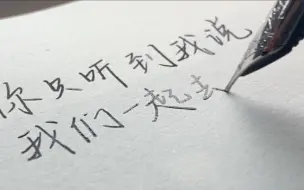 你只听到我说
我们一起去